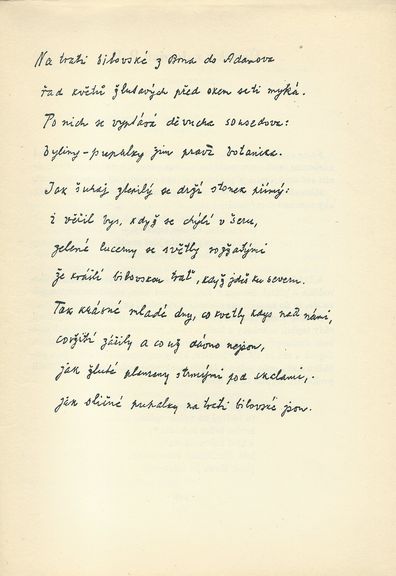 Na trati bílovské z Brna do Adamova
řad květů žlutavých před okem se ti myká.
Po nich se vyptává děvucha sousedova:
byliny-pupalky jim praví botanika.
Jak šuhaj ztepilý se drží stonek přímý:
i věřil bys, když se chýlí v šeru,
zelené lucerny se světly rozžatými
že krášlí bílovskou trať, když jdeš ku severu.
Tak krásné mladé dny, co kvetly kdys nad námi,
co svítí zářily a co už dávno nejsou,
jak žluté plameny strmými pod skalami,
jak sličné pupalky na trati bílovské jsou.